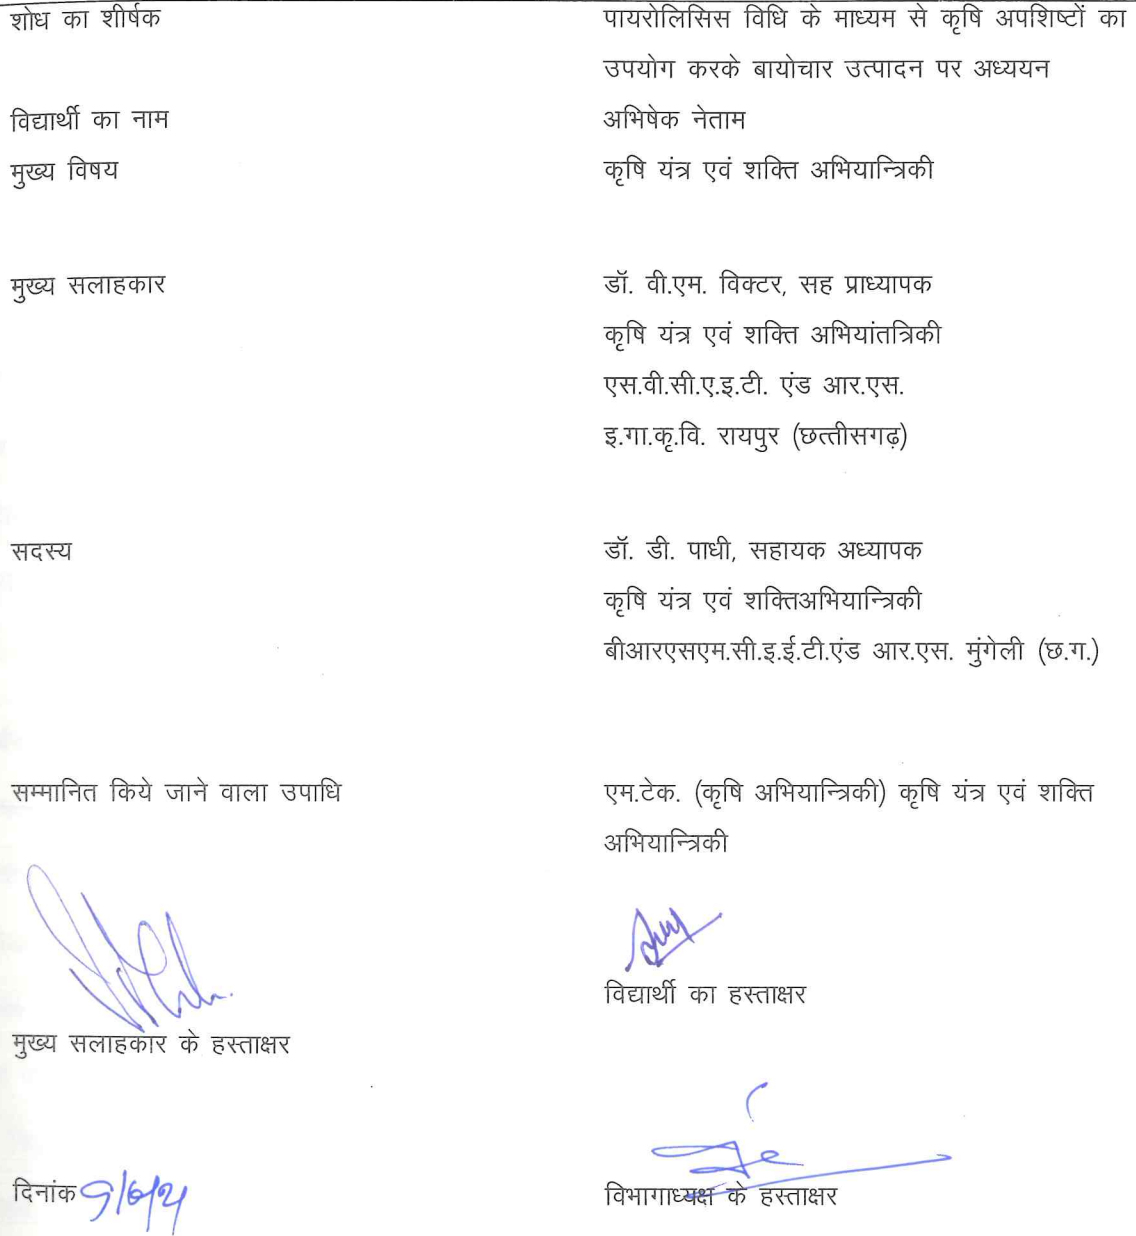 शोध का शीर्षक पायरोलिसिस विधि के माध्यम से कृषि अपशिष्टों का
उपयोग करके बायोचार उत्पादन पर अध्ययन
विद्यार्थी का नाम अभिषेक नेताम
मुख्य विषय कृषि यंत्र एवं शक्ति अभियान्त्रिकी
मुख्य सलाहकार डॉ. वी.एम. विक्टर, सह प्राध्यापक
कृषि यंत्र एवं शक्ति अभियांतत्रिकी
एस.वी.सी.ए.इ.टी. एंड आर.एस.
इ.गा.कृ.वि. रायपुर (छत्तीसगढ़)
सदस्य डॉ. डी. पाधी, सहायक अध्यापक
कृषि यंत्र एवं शक्तिअभियान्त्रिकी
बीआरएसएम.सी.इ.ई.टी.एंड आर.एस. मुंगेली (छ.ग.)
सम्मानित किये जाने वाला उपाधि एम.टेक. (कृषि अभियान्त्रिकी) कृषि यंत्र एवं शक्ति
अभियान्त्रिकी
विद्यार्थी का हस्ताक्षर
मुख्य सलाहकार के हस्ताक्षर
दिनांक
विभागाध्यक्ष के हस्ताक्षर